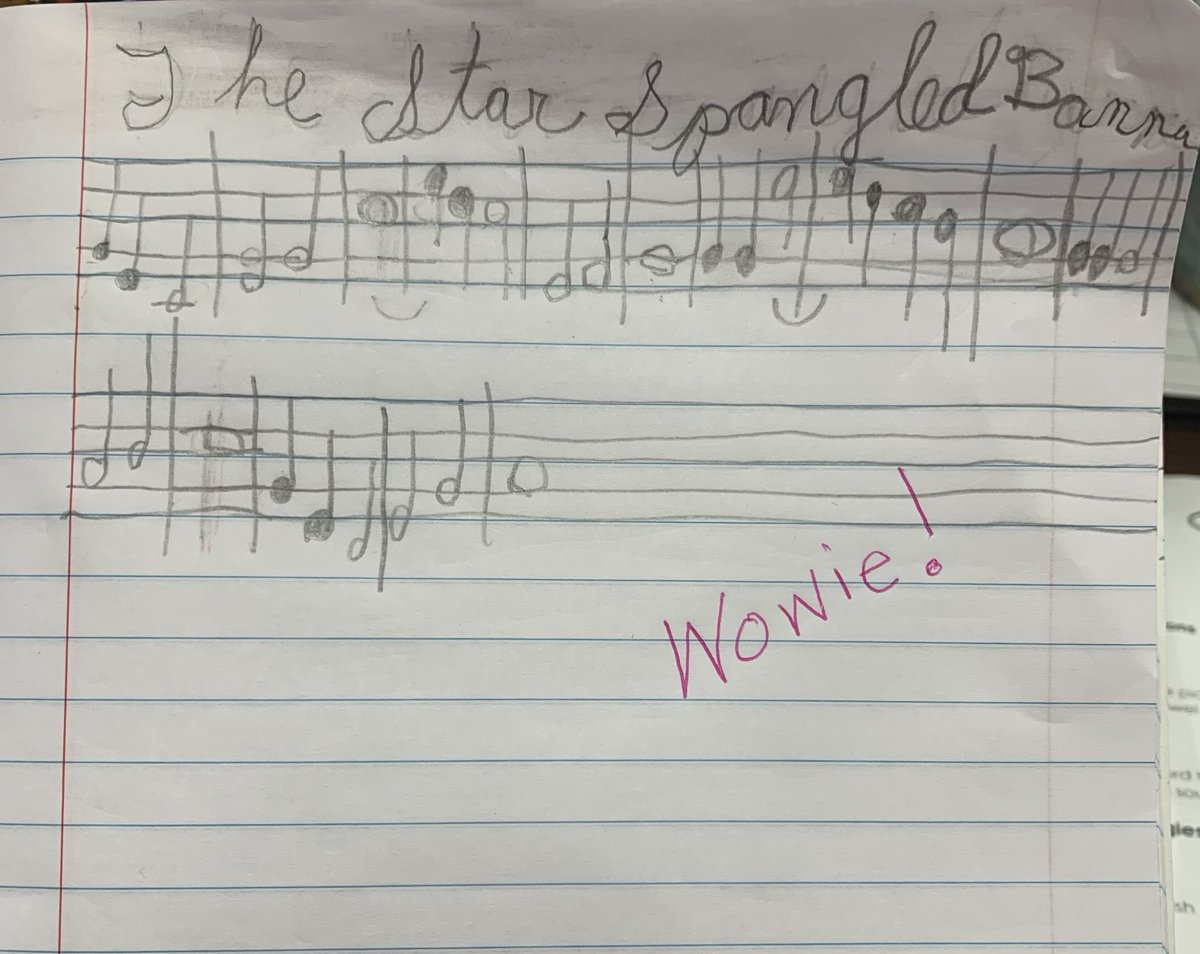 The Star Spangled Banner
Wowie!